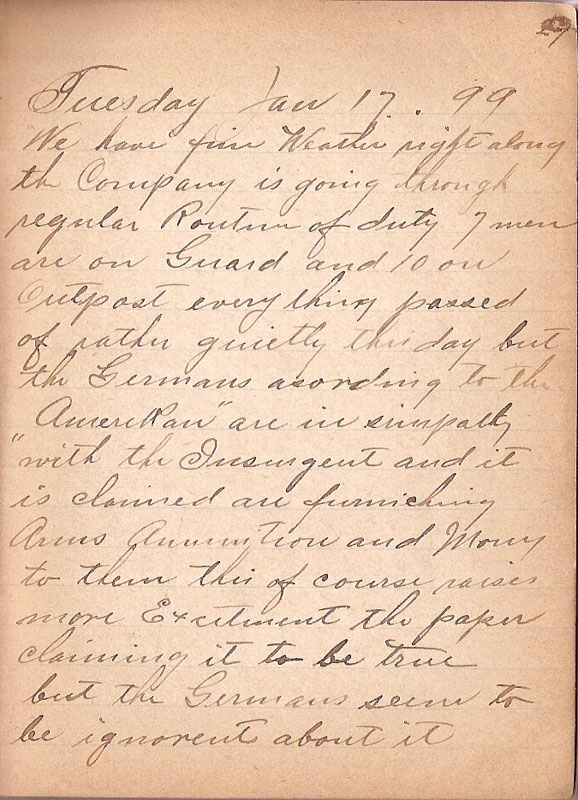 Tuesday Jan 17. 99
We have fine Weather right along
the Company is going through
regular Routine of duty 7 men
are on Guard and 10 on
Outpost every thing passed
of rather quietly this day but
the Germans acording to the
Amerikan" are in simpathy
"with the Insurgent and it
is claimed are furniching
Arms Ammution and Mony
to them this of course raises
more Excitment the paper
claiming it to be true
but the Germans seem to
be ignorent about it